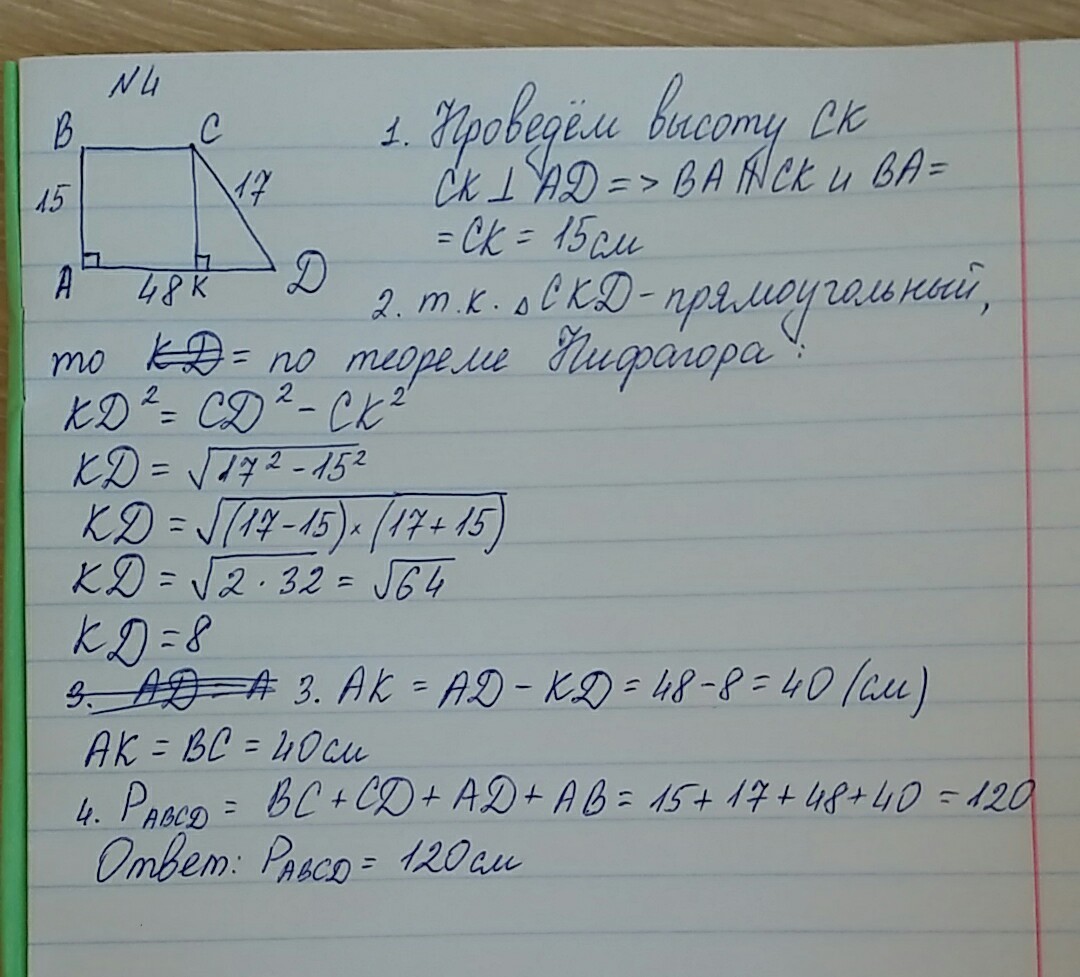 N4
B C
15 17
A 48 K D
1. Проведём высоту CK
CK ⊥ AD => BA ∥ CK и BA =
= CK = 15см
2. т.к. △CKD - прямоугольный,
то KD = по теореме Пифагора:
KD² = CD² - CK²
KD = √17² - 15²
KD = √(17-15)×(17+15)
KD = √2·32 = √64
KD = 8
3. AD = A 3. AK = AD - KD = 48-8 = 40 (см)
AK = BC = 40см
4. PABCD = BC + CD + AD + AB = 15+17+48+40 = 120
Ответ: PABCD = 120см